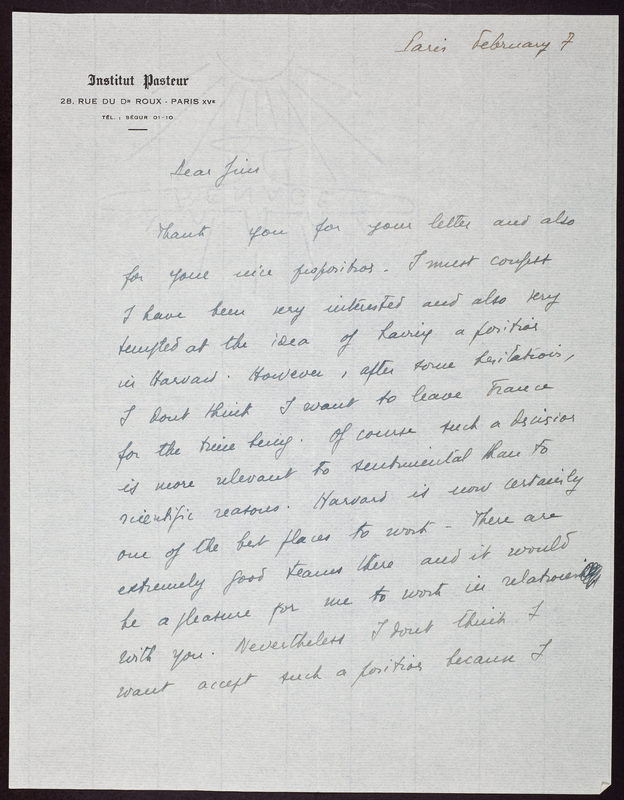 Paris February 7
Institut Pasteur
28, RUE DU Dr ROUX - PARIS XVe
TÉL. : SÉGUR 01-10
Dear Jim
Thank you for your letter and also
for your nice proposition. I must confess
I have been very interested and also very
tempted at the idea of having a position
in Harvard. However, after some hesitations,
I dont think I want to leave France
for the time being. Of course such a decision
is more relevant to sentimental than to
scientific reasons. Harvard is now certainly
one of the best places to work - There are
extremely good teams there and it would
be a pleasure for me to work in relation
with you. Nevertheless I dont think I
want accept such a position because I